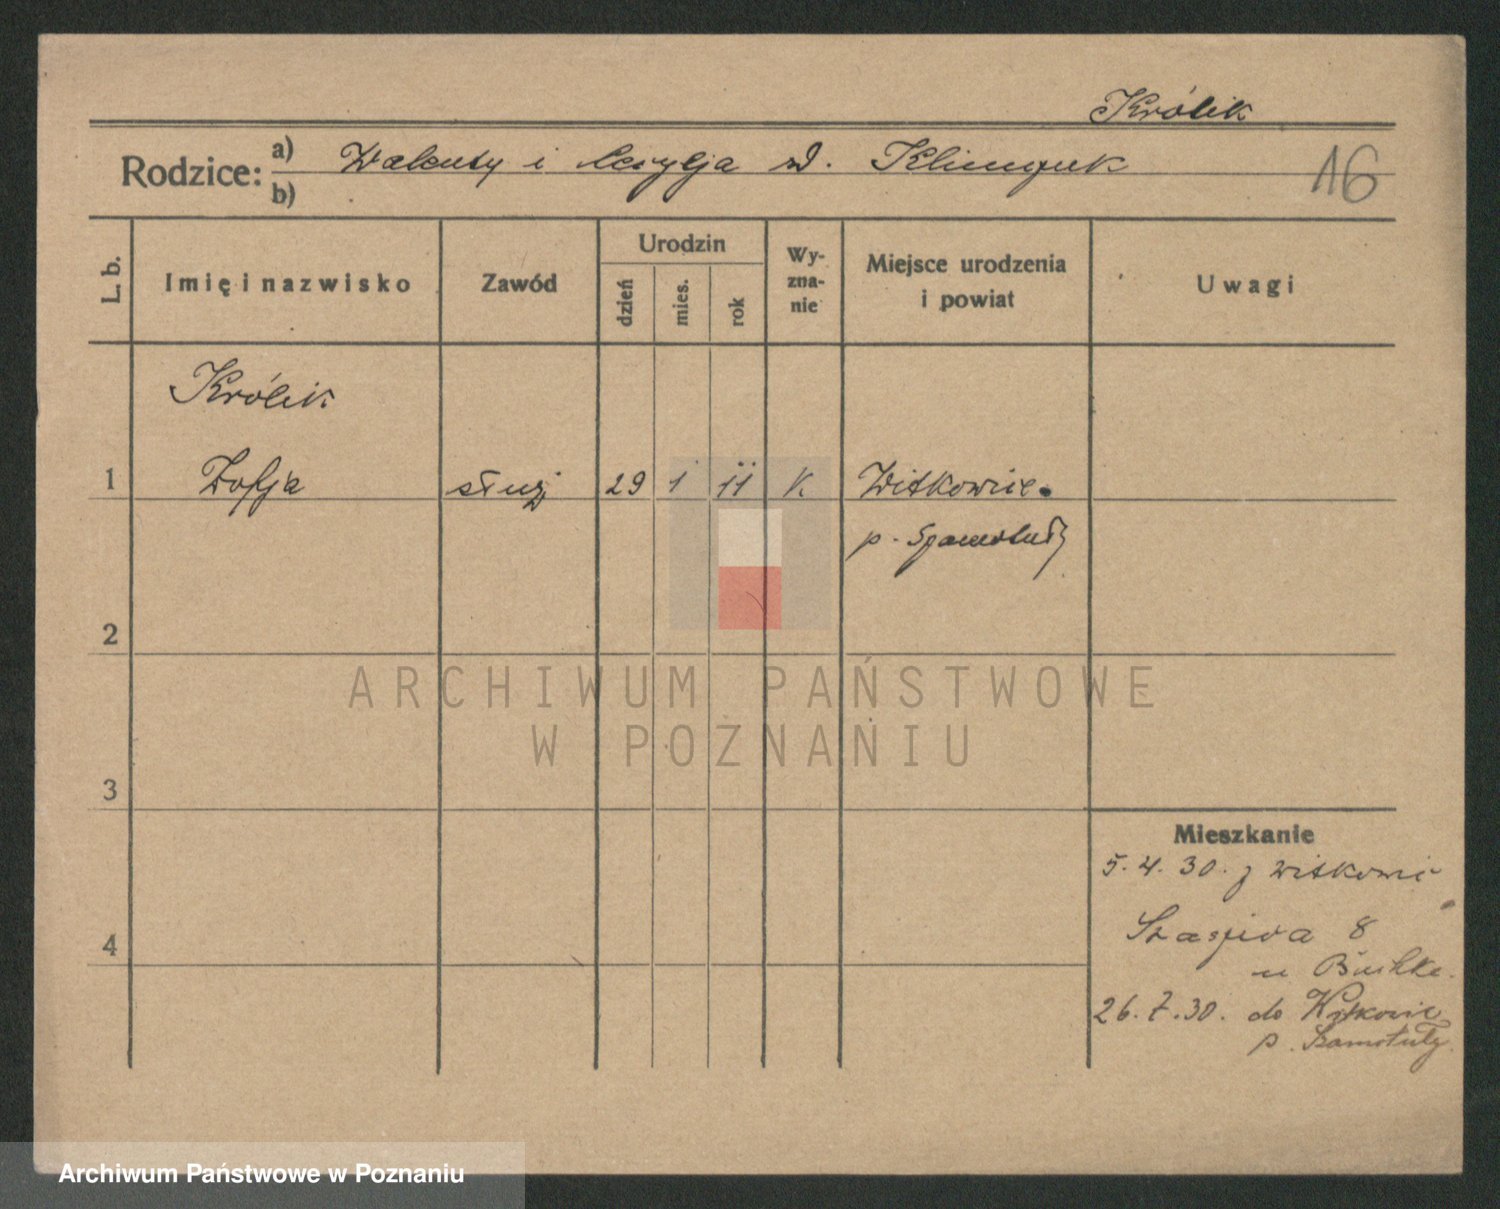 Królik
Rodzice:
a) Walenty i d. Klimczuk
b)
16
L. b.
Imię i nazwisko
Zawód
Urodzin
dzień
mies.
rok
Wy-
zna-
nie
Miejsce urodzenia
i powiat
Uwagi
Królik
1 Zofja służ 29 1 11 K Witkowice
p. Szamotuły
2
3
4
Mieszkanie
5. 4. 30. z Witkowic
8
u
26. 7. 30. do Witkowic
p. Szamotuły
ARCHIWUM PAŃSTWOWE
W POZNANIU
Archiwum Państwowe w Poznaniu